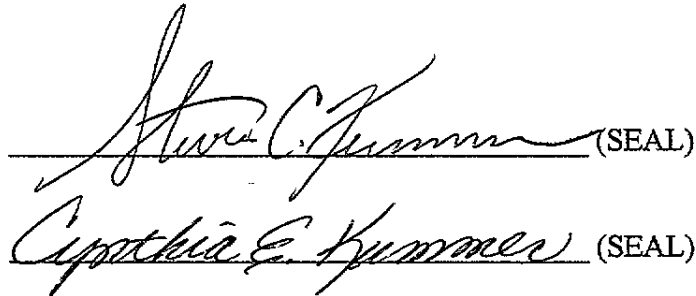 Steve C. Kummer (SEAL)
Cynthia E. Kummer (SEAL)